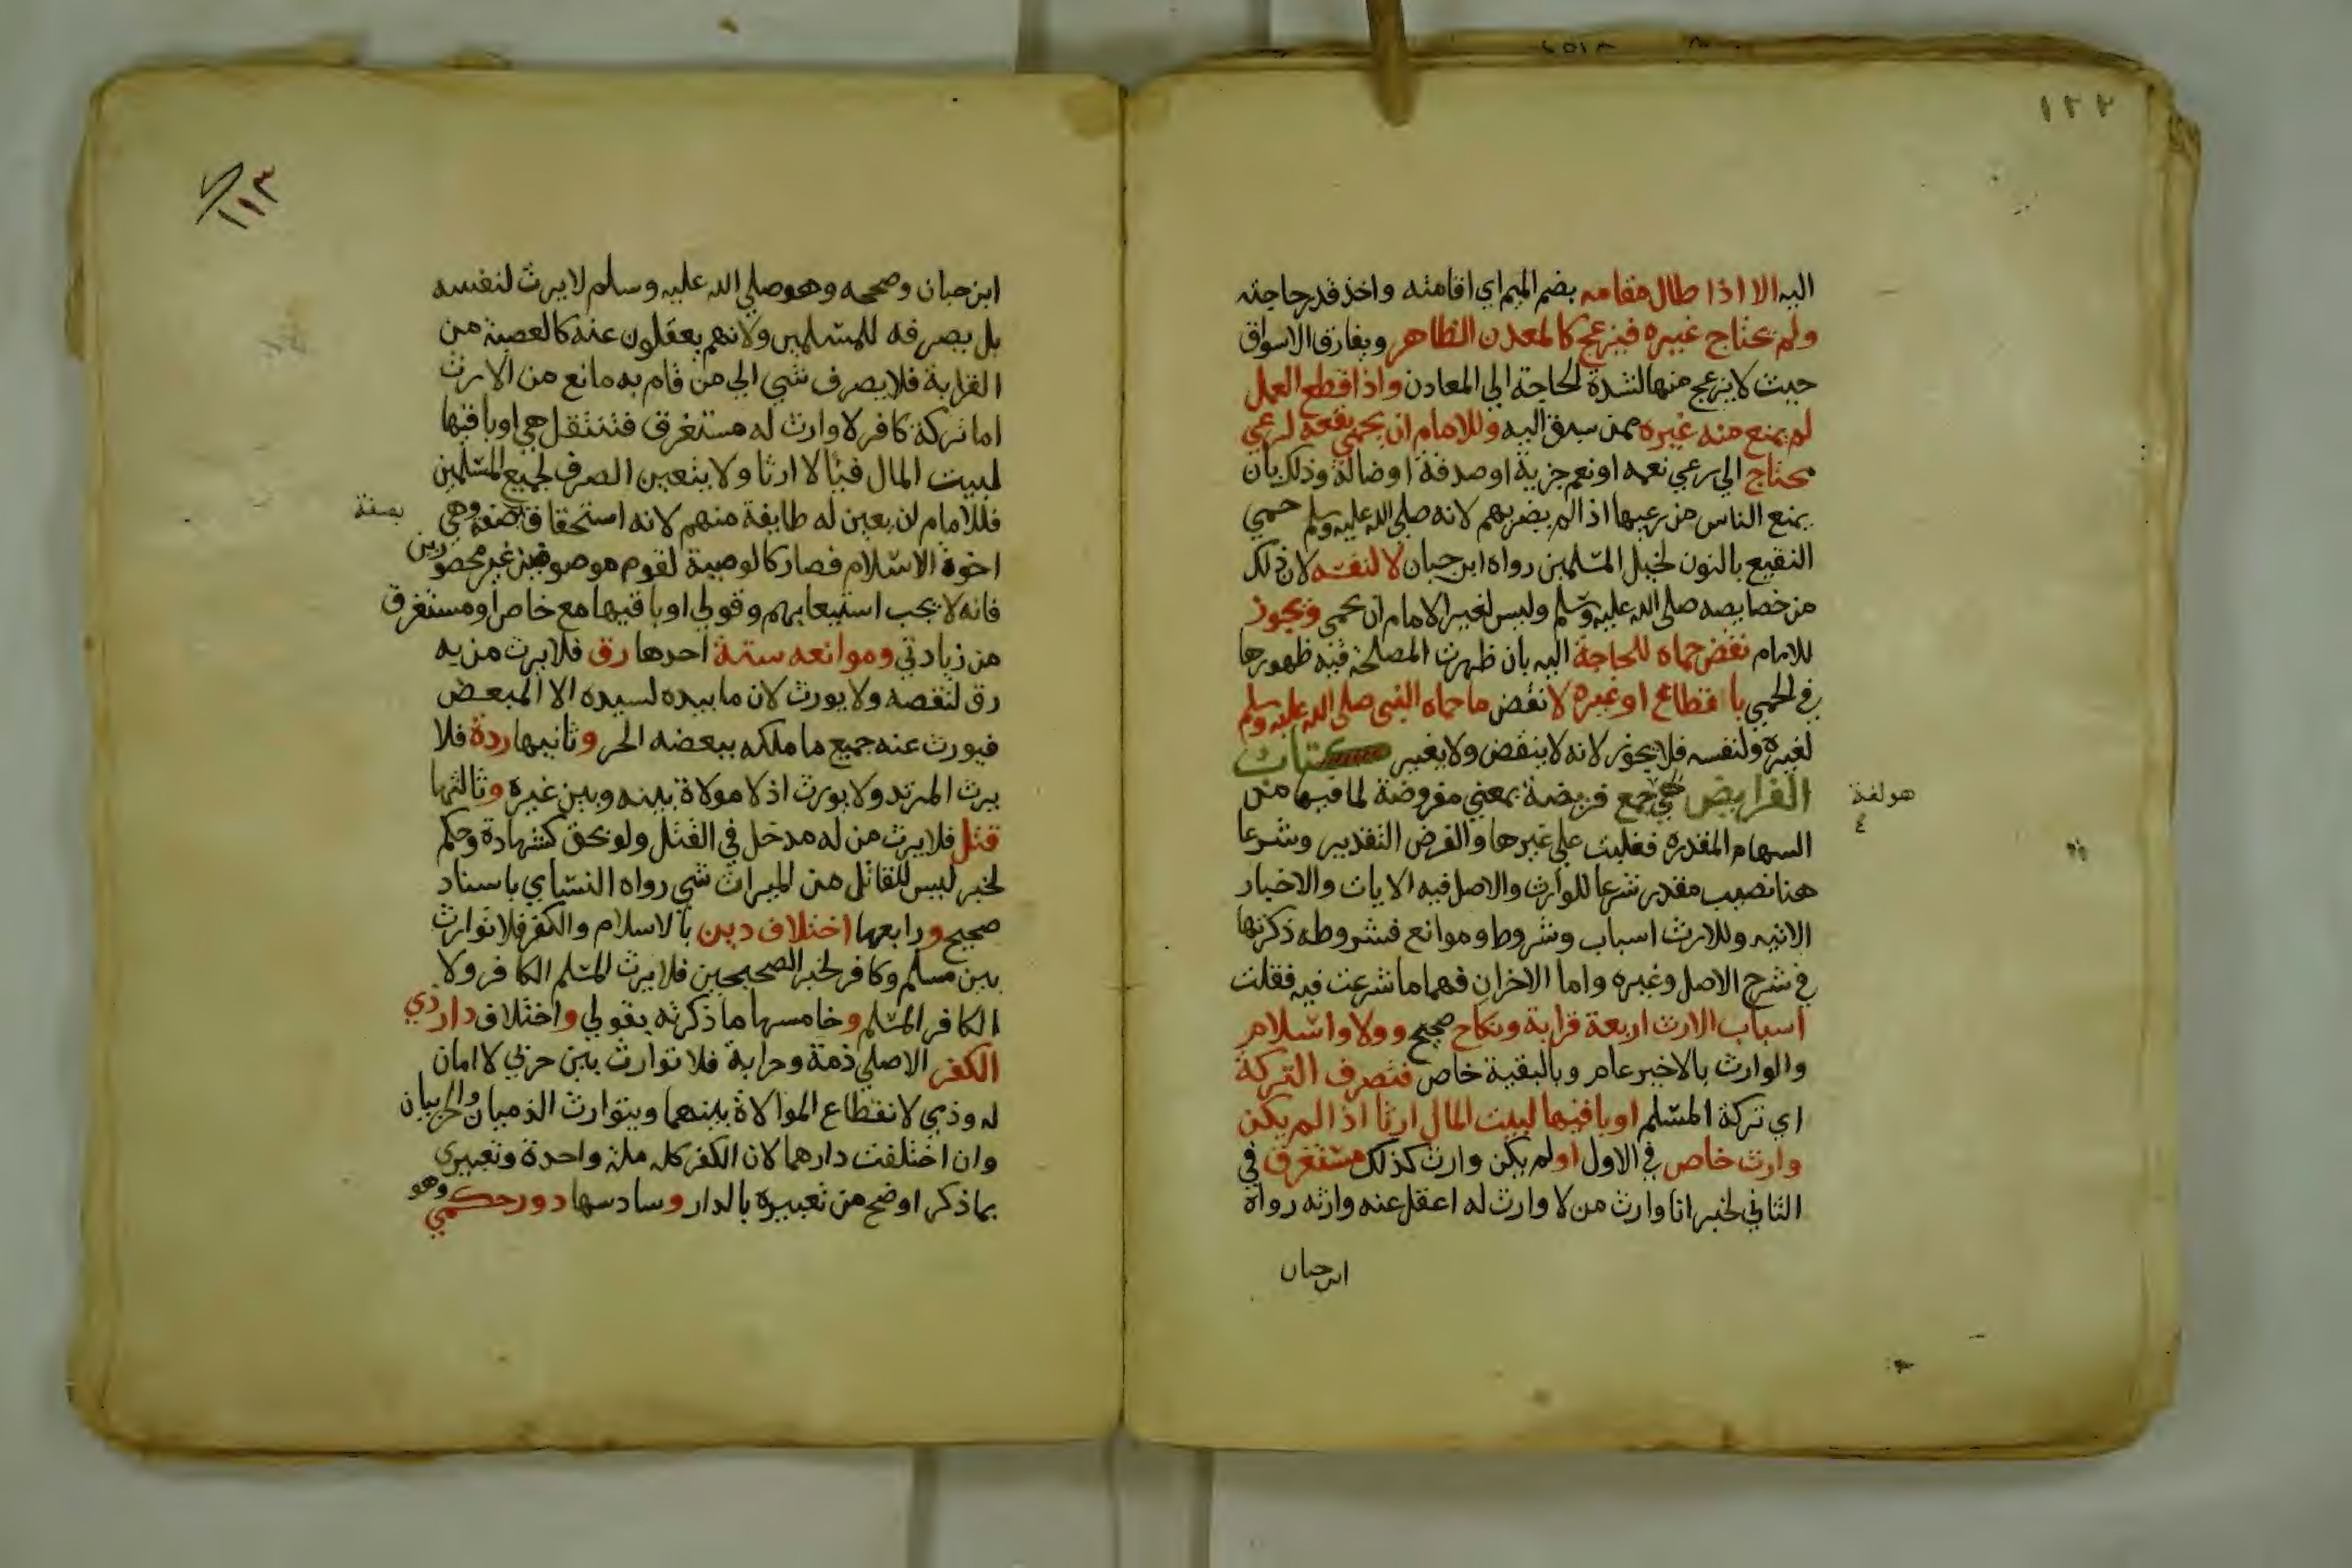 ١٢٢
اليه الا اذا طال مقامه بضم الميم اي اقامته واخذ قدر حاجته
ولم يحتاج غيره فيزعج كالمعدن الظاهر ويفارق الاسواق
حيث لا يزعج منها لشدة الحاجة الي المعادن واذا قطع العمل
لم يمنع منه غيره ممن سبق اليه وللامام ان يحمي بقعة لرعي
محتاج الي رعي نعمه او نعم جزية او صدقة او ضالة وذلك بان
يمنع الناس من رعيها اذا لم يضر بهم لانه صلي الله عليه وسلم حمي
النقيع بالنون لخيل المسلمين رواه ابن حبان لا لنفسه لان ذلك
من خصايصه صلي الله عليه وسلم وليس لغير الامام ان يحمي ويجوز
للامام نقض حماه للحاجة اليه بان ظهرت المصلحة فيه ظهورها
في الحمي باقطاع او غيره لا نقض ما حماه النبي صلي الله عليه وسلم
لغيره ولنفسه فلا يجوز لانه لا ينقض ولا يغير كتاب
الفرايض هي جمع فريضة بمعني مفروضة لما فيها من
هو لغة
٤
السهام المقدرة فغلبت علي غيرها والفرض التقدير وشرعا
هنا نصيب مقدر شرعا للوارث والاصل فيه الايات والاخبار
الاتيه وللارث اسباب وشروط وموانع فشروطه ذكرتها
في شرح الاصل وغيره واما الاخران فهما ما شرعت فيه فقلت
اسباب الارث اربعة قرابة ونكاح صحيح وولا واسلام
والوارث بالاخير عام وبالبقية خاص فتصرف التركة
اي تركة المسلم او باقيها لبيت المال ارثا اذا لم يكن
وارث خاص في الاول او لم يكن وارث كذلك مستغرق في
الثاني لخبر انا وارث من لا وارث له اعقل عنه وارثه رواه
ابن حبان
١١٣
ابن حبان وصححه وهو صلي الله عليه وسلم لا يرث لنفسه
بل يصرفه للمسلمين ولانهم يعقلون عنه كالعصبة من
القرابة فلا يصرف شي الي من قام به مانع من الارث
اما تركة كافر لا وارث له مستغرق فتنتقل هي او باقيها
لبيت المال فيا لا ارثا ولا يتعين الصرف لجميع المسلمين
فللامام ان يعين له طايفة منهم لانه استحقاق بصفة وهي
بصفة
اخوة الاسلام فصار كالوصية لقوم موصوفين غير محصورين
فانه لا يجب استيعابهم وقولي او باقيها مع خاص او مستغرق
من زيادتي وموانعه ستة احدها رق فلا يرث من به
رق لنقصه ولا يورث لان ما بيده لسيده الا المبعض
فيورث عنه جميع ما ملكه ببعضه الحر وثانيها ردة فلا
يرث المرتد ولا يورث اذ لا موالاة بينه وبين غيره وثالثها
قتل فلا يرث من له مدخل في القتل ولو بحق كشهادة وحكم
لخبر ليس للقاتل من الميراث شي رواه النساي باسناد
صحيح ورابعها اختلاف دين بالاسلام والكفر فلا توارث
بين مسلم وكافر لخبر الصحيحين فلا يرث المسلم الكافر ولا
الكافر المسلم وخامسها ما ذكرته بقولي واختلاف دار ذي
الكفر الاصلي ذمة وحرابة فلا توارث بين حربي لا امان
له وذمي لانقطاع الموالاة بينهما ويتوارث الذميان والحربيان
وان اختلفت دارهما لان الكفر كله ملة واحدة وتعبيري
بما ذكر اوضح من تعبيره بالدار وسادسها دور حكمي وهو